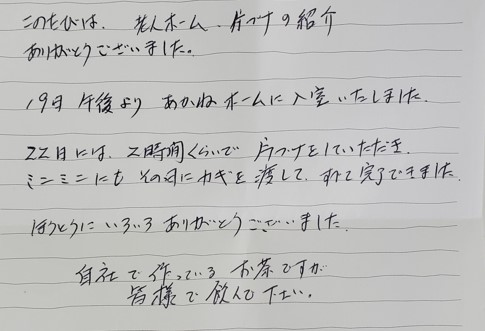 このたびは、老人ホーム、片づけの紹介
ありがとうございました。
19日 午後より あかねホームに入室いたしました。
22日には、2時間くらいで 片づけをしていただき、
ミニミニにも その日にカギを渡して、すべて完了できました。
ほんとうに いろいろ ありがとうございました。
自社で作っている お茶ですが
皆様で飲んで下さい。